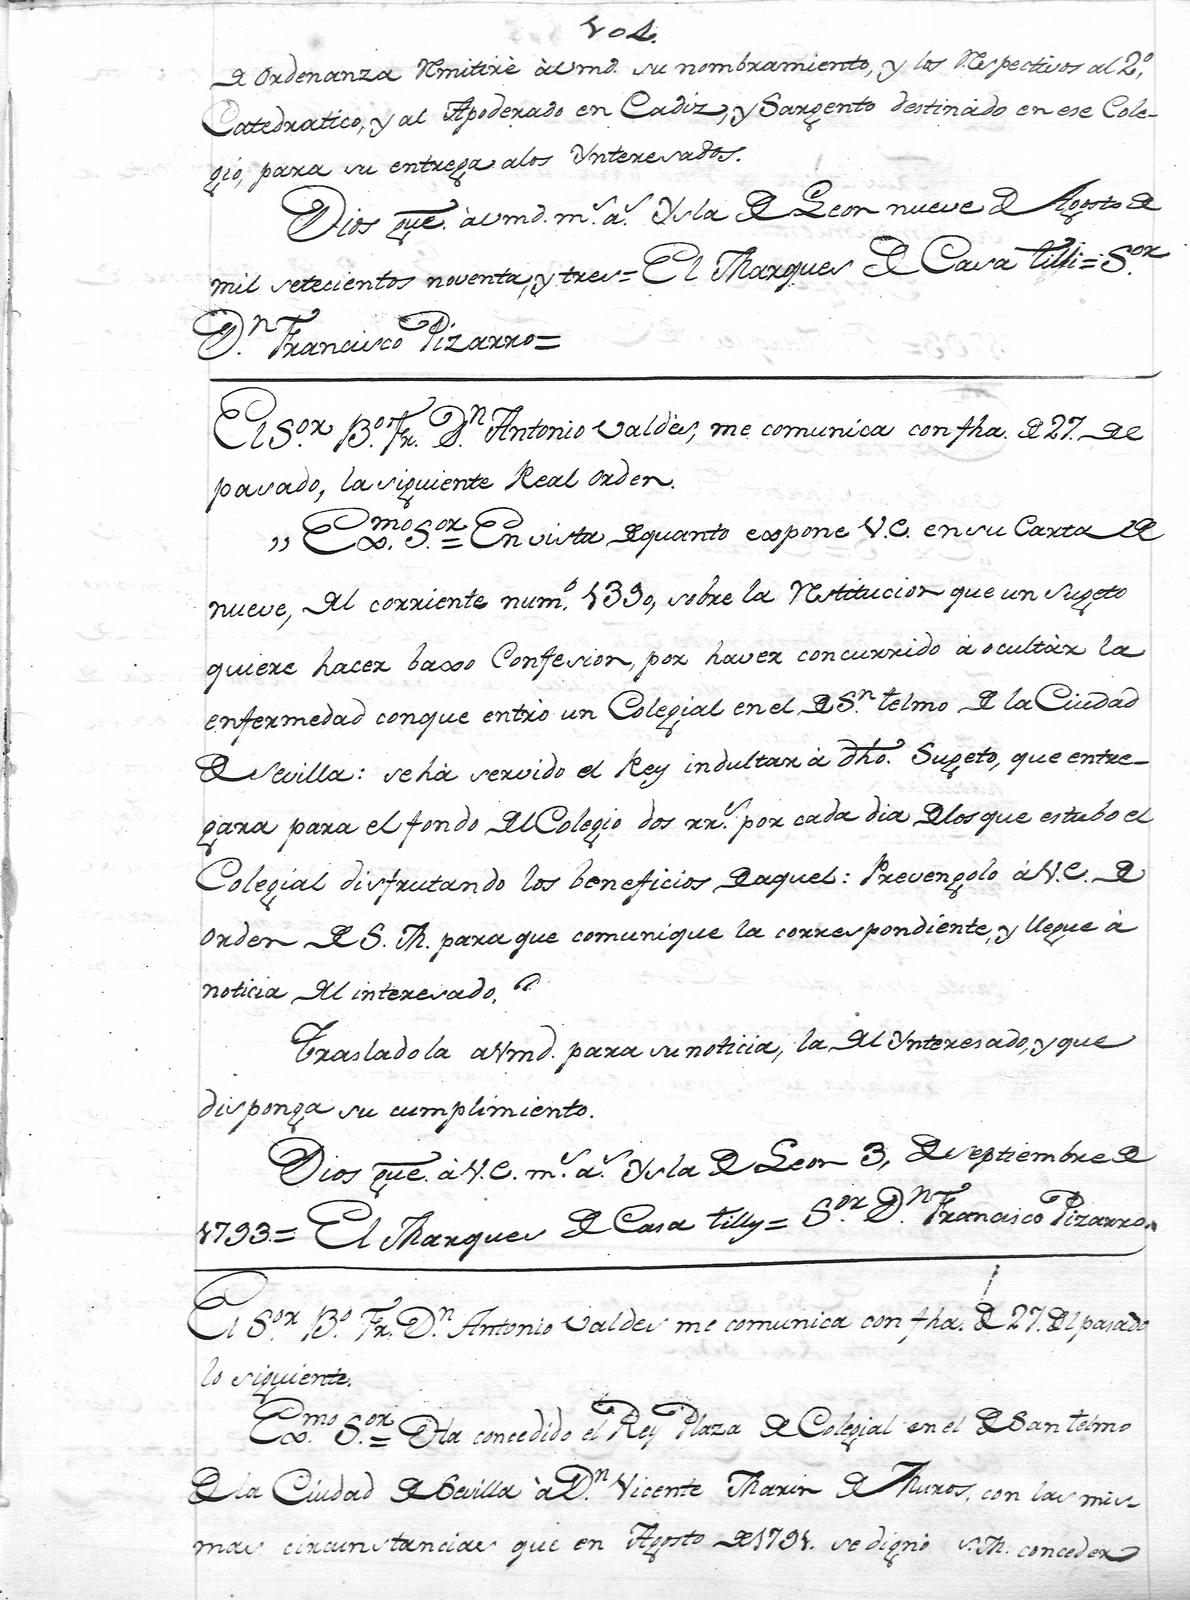 104.
de Ordenanza Remitire à Vmd. su nombramiento, y los Respectivos al 2.º
Catedratico, y al Apoderado en Cadiz, y Sargento destinado en ese Cole-
gio, para su entrega a los Ynteresados.
Dios gue. à Vmd. m.s a.s Ysla de Leon nueve de Agosto de
mil setecientos noventa, y tres= El Marques de Casa Tilli= S.or
D.n Francisco Pizarro=
El S.or B.o Fr. D.n Antonio Valdès, me comunica con fha. de 27. de
pasado, la siguiente Real Orden.
„ Exmo. S.or = En vista de quanto expone V.E. en su Carta de
nueve, del corriente num.º 1390, sobre la Restitucion que un Sugeto
quiere hacer baxo Confesion, por haver concurrido à ocultàr la
enfermedad conque entrò un Colegial en el de S.n Telmo de la Ciudad
de Sevilla: se hà servido el Rey indultar à dho. Sugeto, que entre-
gara para el fondo del Colegio dos rr.s por cada dia de los que estubo el
Colegial disfrutando los beneficios de aquel: Prevengolo à V.E. de
Orden de S. M. para que comunique la correspondiente, y llegue à
noticia del interesado. “
Trasladola a Vmd. para su noticia, la del Ynteresado, y que
disponga su cumplimiento.
Dios gue. à V.E. m.s a.s Ysla de Leon 3, de Septiembre de
1793.= El Marques de Casa Tilly= S.or D.n Francisco Pizarro.
El S.or B.o Fr. D.n Antonio Valdes me comunica con fha. de 27. del pasado
lo siguiente.
Exmo. S.or = Ha concedido el Rey Plaza de Colegial en el de San Telmo
de la Ciudad de Sevilla à D.n Vicente Marin de Muros, con las mis-
mas circunstancias que en Agosto de 1791. se dignò S.M. conceder